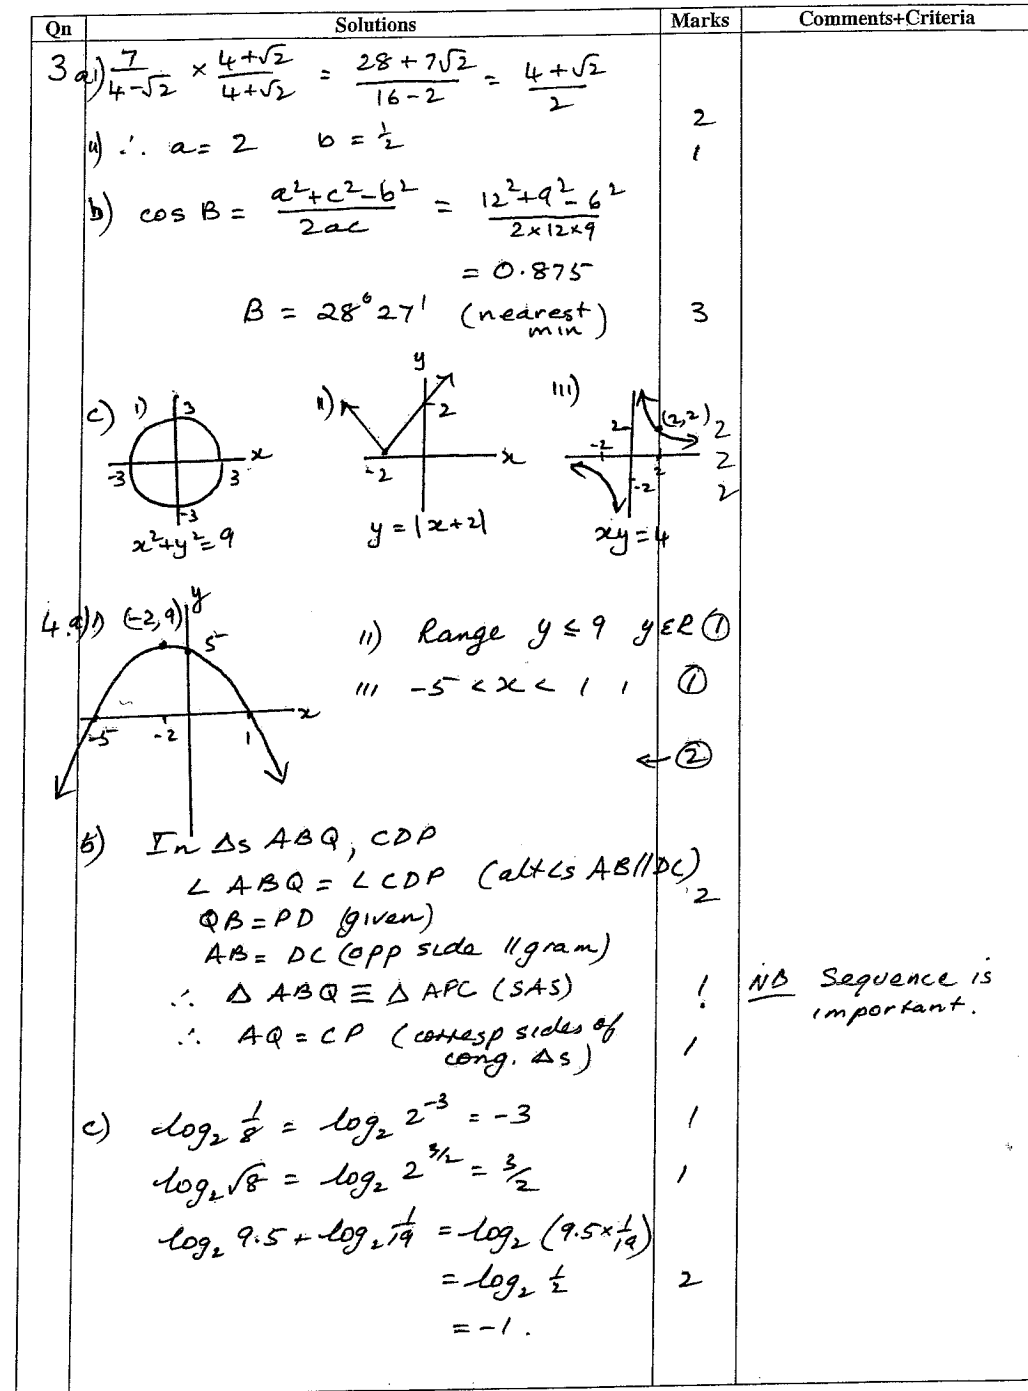 Qn Solutions Marks Comments+Criteria
3 a) i) 7/(4-√2) × (4+√2)/(4+√2) = (28+7√2)/(16-2) = (4+√2)/2
2
ii) ∴ a = 2 b = 1/2 1
b) cos B = (a²+c²-b²)/(2ac) = (12²+9²-6²)/(2×12×9)
= 0.875
B = 28°27' (nearest min) 3
c) i) 3 x -3 3 -3
x²+y²=9
ii) y 2 -2 x
y = |x+2|
iii) 2 (2,2) -2 2 -2
xy = 4
2
2
2
4. a) i) (-2,9) y 5 x -5 -2 1
ii) Range y ≤ 9 y∈R ①
iii -5 < x < 1 , ①
← ②
b) In Δs ABQ, CDP
∠ABQ = ∠CDP (alt∠s AB//DC)
2
QB = PD (given)
AB = DC (opp side //gram)
∴ Δ ABQ ≡ Δ APC (SAS) 1 NB Sequence is
important.
∴ AQ = CP (corresp sides of
cong. Δs) 1
c) log₂ 1/8 = log₂ 2⁻³ = -3 1
log₂ √8 = log₂ 2^(3/2) = 3/2 1
log₂ 9.5 + log₂ 1/19 = log₂ (9.5×1/19)
= log₂ 1/2 2
= -1.